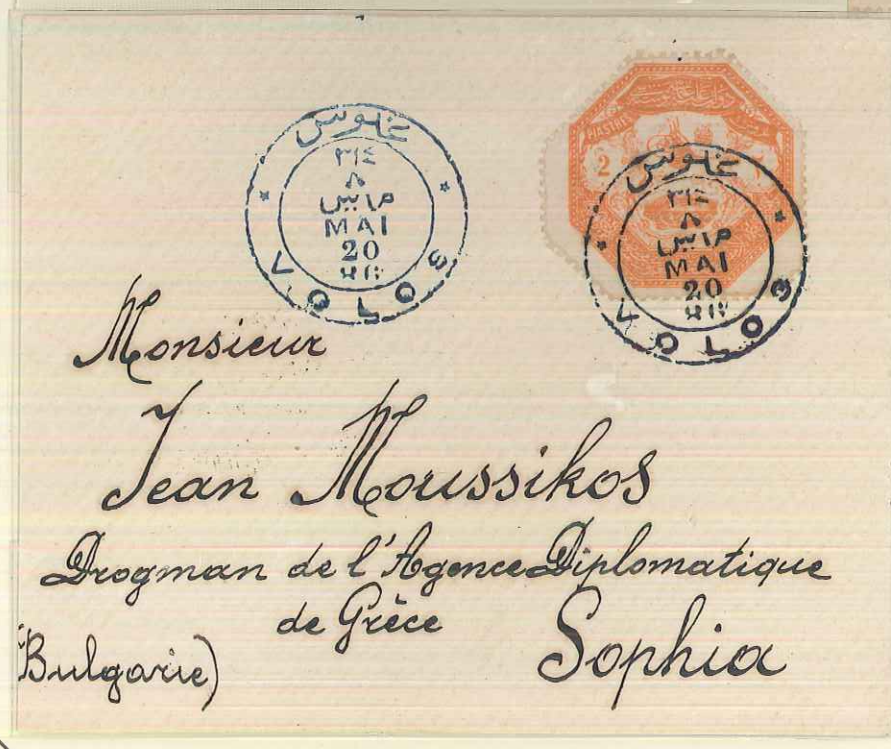 غلوس
٣١٤
٨
مايس
MAI
20
98
VOLO S
PIASTRES
2
غلوس
٣١٤
٨
مايس
MAI
20
98
VOLO S
Monsieur
Jean Moussikos
Drogman de l'Agence Diplomatique
de Grèce
(Bulgarie) Sophia